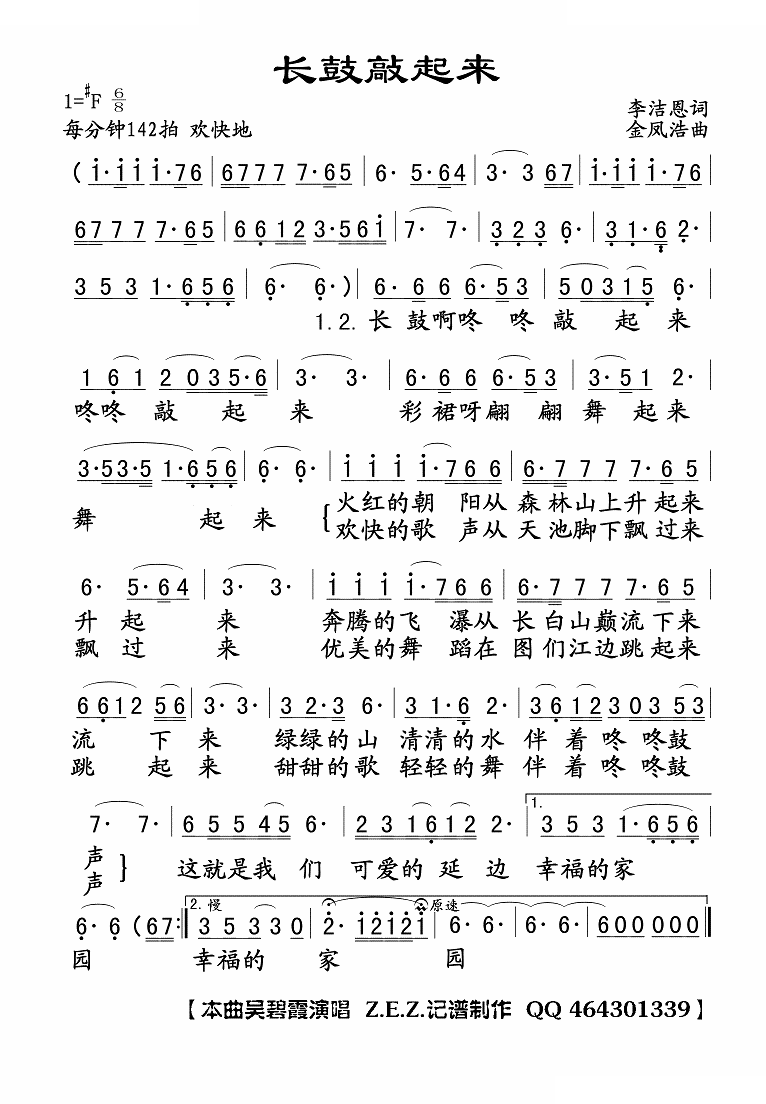 长鼓敲起来
1=#F 6/8
李洁恩词
每分钟142拍 欢快地
金凤浩曲
( i·iii·76 | 67777·65 | 6· 5·64 | 3· 3 67 | i·iii·76 |
67777·65 | 66123·561 | 7· 7· | 323 6· | 31·6 2· |
353 1·656 | 6· 6·) | 6·66 6·53 | 503156· |
1.2. 长鼓啊咚 咚敲 起 来
161 2035·6 | 3· 3· | 6·66 6·53 | 3·51 2· |
咚咚 敲 起 来 彩裙呀翩 翩舞起来
3·53·5 1·656 | 6· 6· | iiii·766 | 6·7777·65 |
舞 起来 { 火红的朝 阳从森林山上升起来
欢快的歌 声从天池脚下飘过来
6· 5·64 | 3· 3· | iiii·766 | 6·7777·65 |
升起 来 奔腾的飞 瀑从长白山巅流下来
飘过 来 优美的舞 蹈在图们江边跳起来
6612 56 | 3· 3· | 32·3 6· | 31·6 2· | 361230353 |
流 下来 绿绿的山 清清的水 伴着咚咚鼓
跳 起来 甜甜的歌 轻轻的舞 伴着咚咚鼓
7· 7· | 655456· | 2316122· | 1. 353 1·656 |
声 } 这就是我们 可爱的延边 幸福的家
声
6· 6 (67:‖ 2. 慢 353330 | 2· i2i2i 原速 | 6· 6· | 6· 6· | 600000 ‖
园 幸福的 家 园
【本曲吴碧霞演唱 Z.E.Z.记谱制作 QQ 464301339】